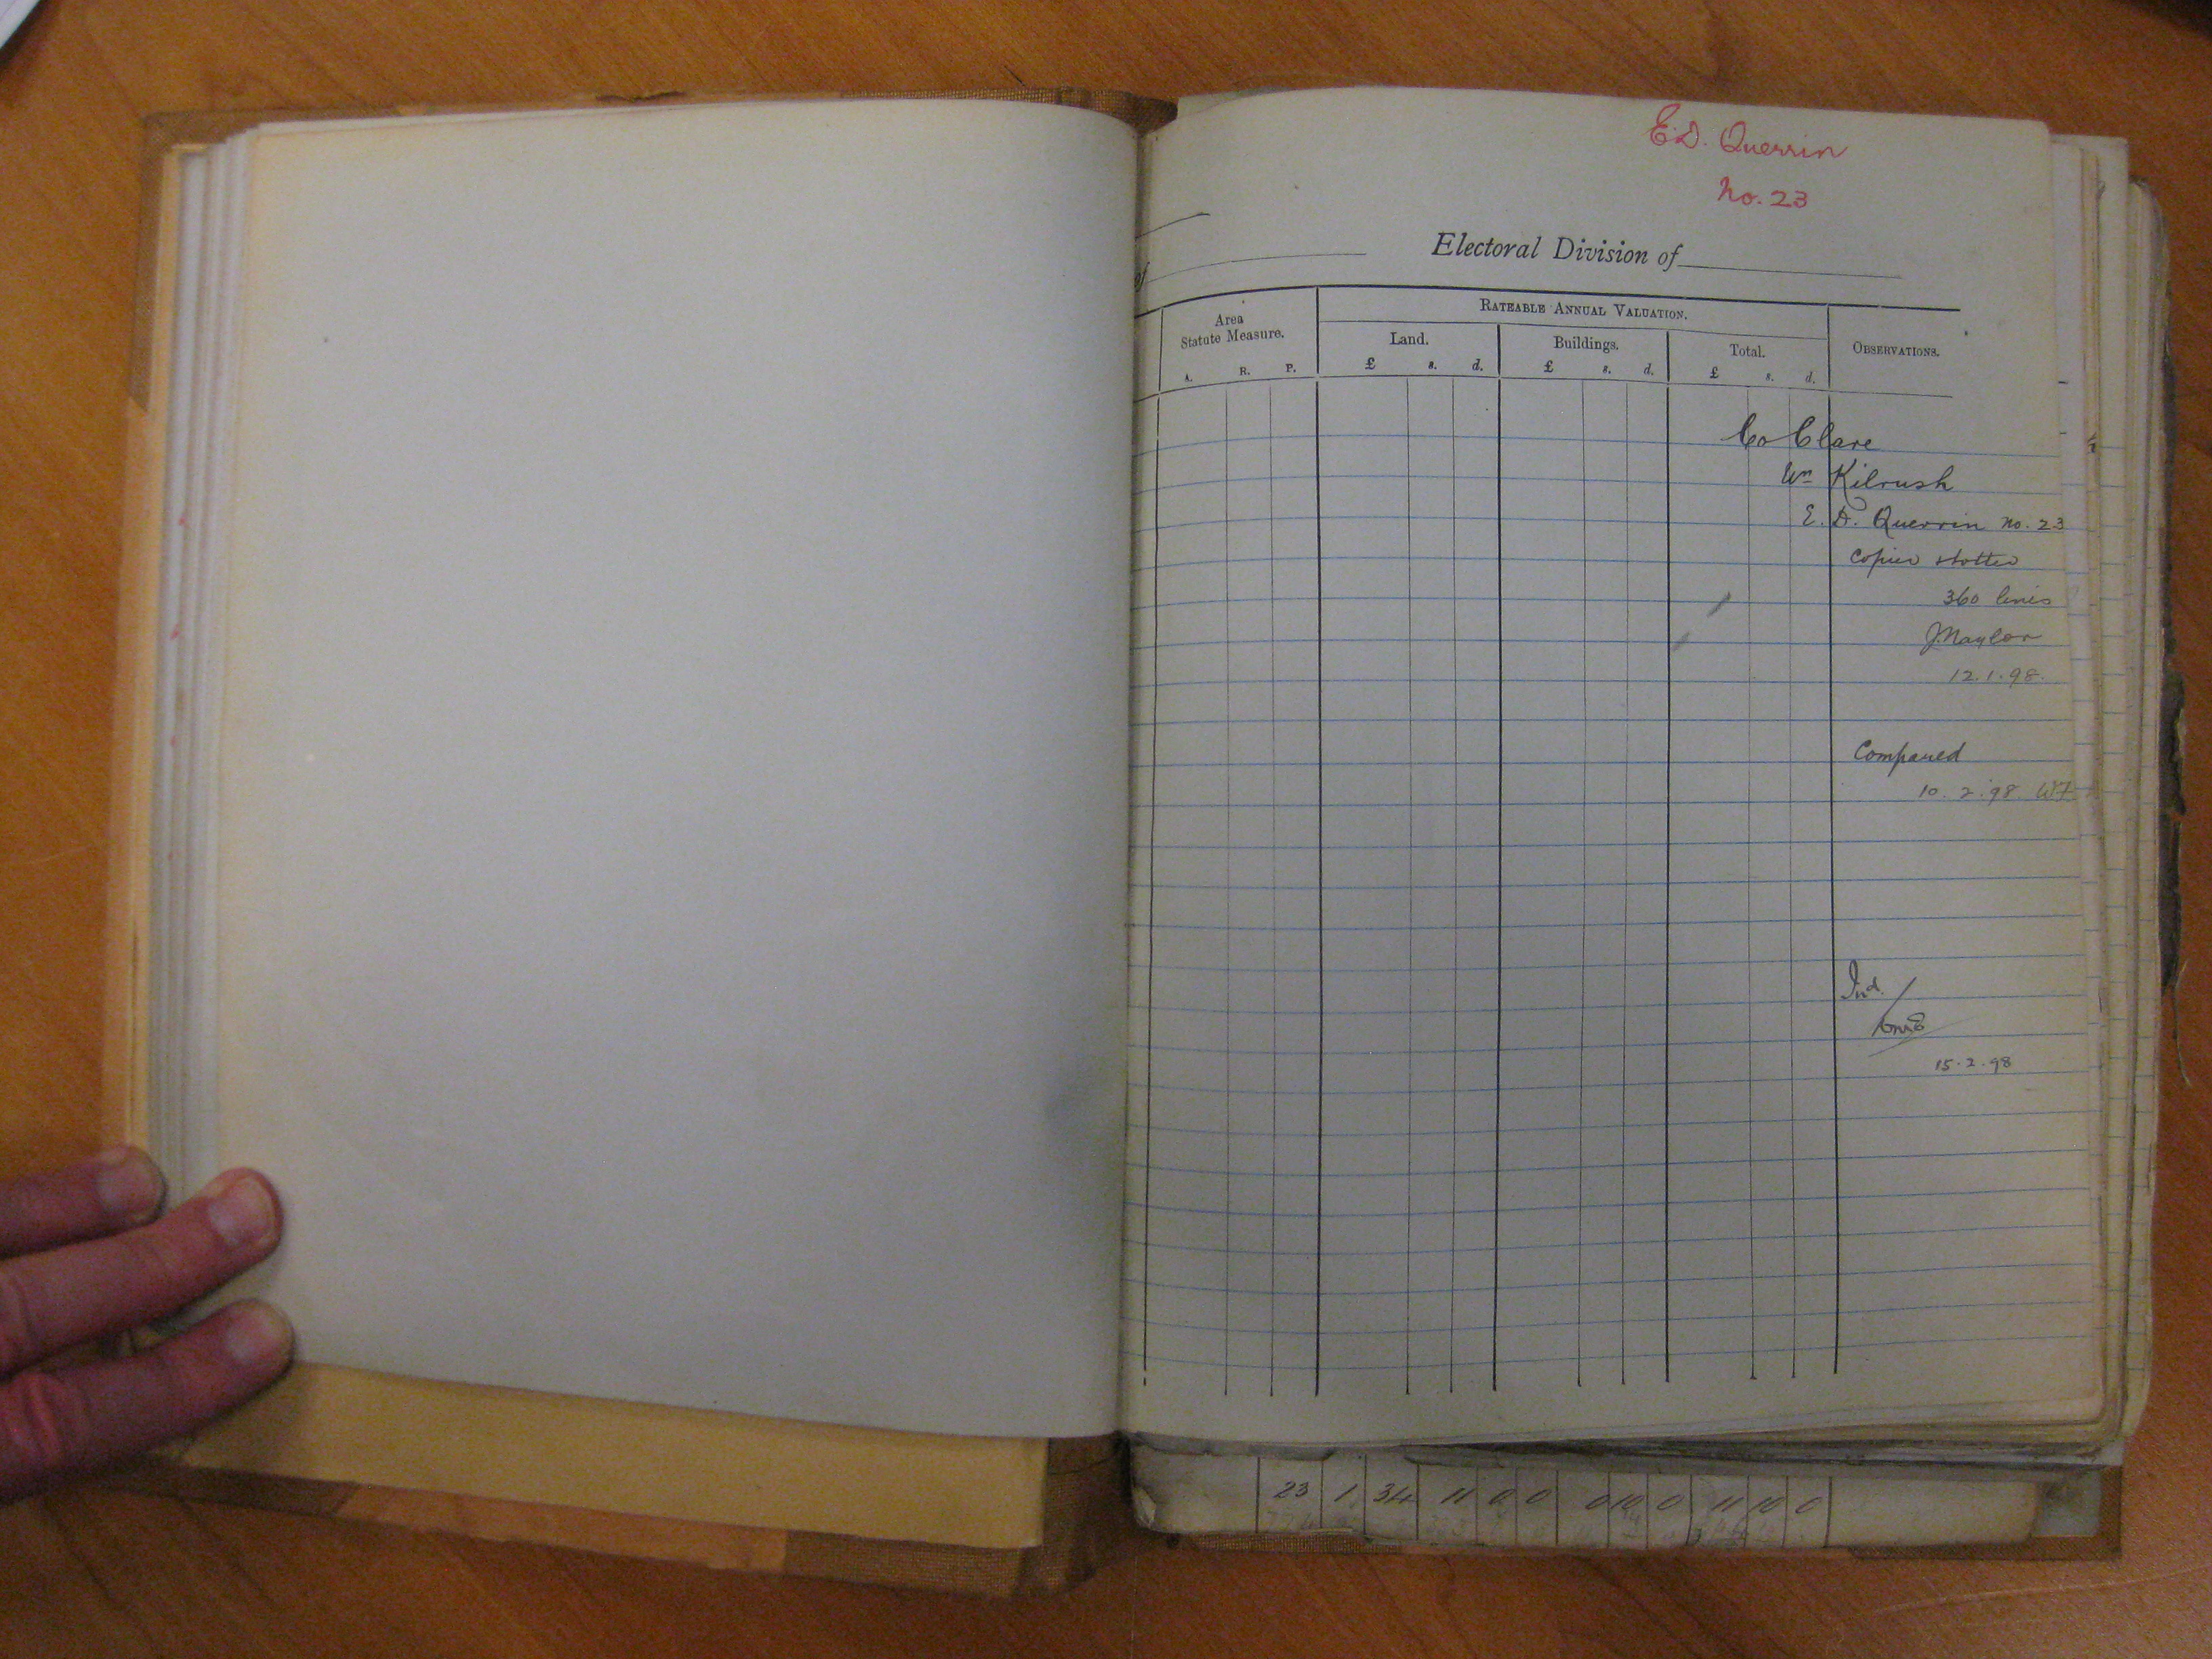 E.D. Querrin
No. 23
of
Electoral Division of
Area
Statute Measure.
A. R. P.
RATEABLE ANNUAL VALUATION.
Land.
£ s. d.
Buildings.
£ s. d.
Total.
£ s. d.
OBSERVATIONS.
Co Clare
Un Kilrush
E. D. Querrin No. 23
360 lines
J. Naylor
12.1.98.
Compared
10.2.98
Ind.
15.2.98
23 1 34 11 0 0 0 10 0 11 10 0